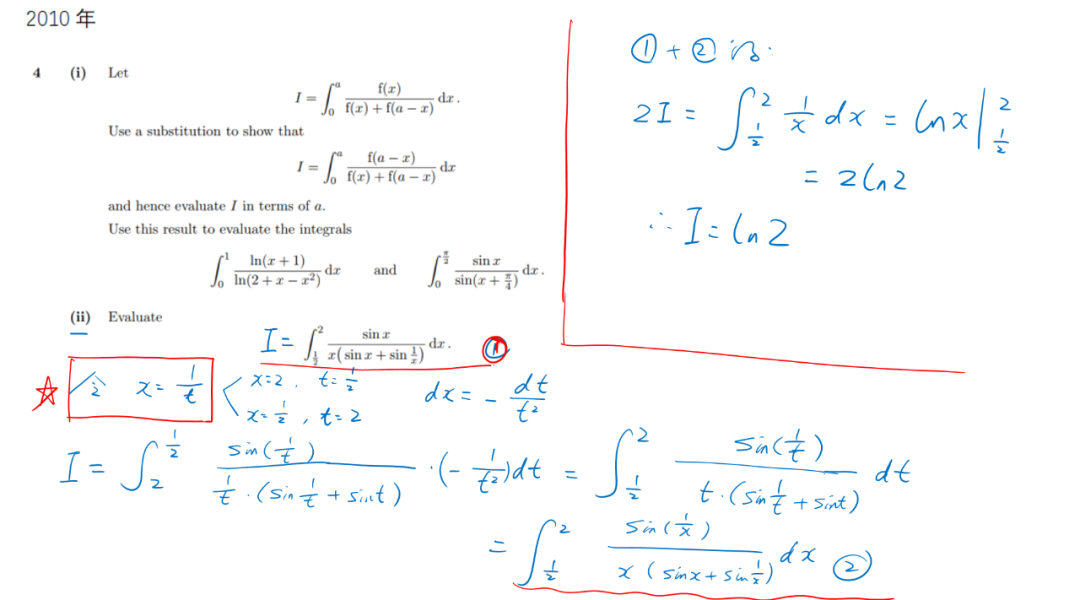 2010 年
4 (i) Let
I = ∫₀ᵃ f(x) / (f(x) + f(a − x)) dx .
Use a substitution to show that
I = ∫₀ᵃ f(a − x) / (f(x) + f(a − x)) dx
and hence evaluate I in terms of a.
Use this result to evaluate the integrals
∫₀¹ ln(x + 1) / ln(2 + x − x²) dx and ∫₀^(π/2) sin x / sin(x + π/4) dx .
(ii) Evaluate
I = ∫_(1/2)^2 sin x / (x(sin x + sin 1/x)) dx . ①
☆ 令 x = 1/t x=2 , t=1/2 dx = − dt/t²
x=1/2 , t=2
I = ∫_2^(1/2) sin(1/t) / (1/t · (sin 1/t + sint)) · (− 1/t²)dt = ∫_(1/2)^2 sin(1/t) / (t · (sin 1/t + sint)) dt
= ∫_(1/2)^2 sin(1/x) / (x (sinx + sin 1/x)) dx ②
① + ② 得.
2I = ∫_(1/2)^2 1/x dx = lnx |_(1/2)^2
= 2ln2
∴ I = ln2